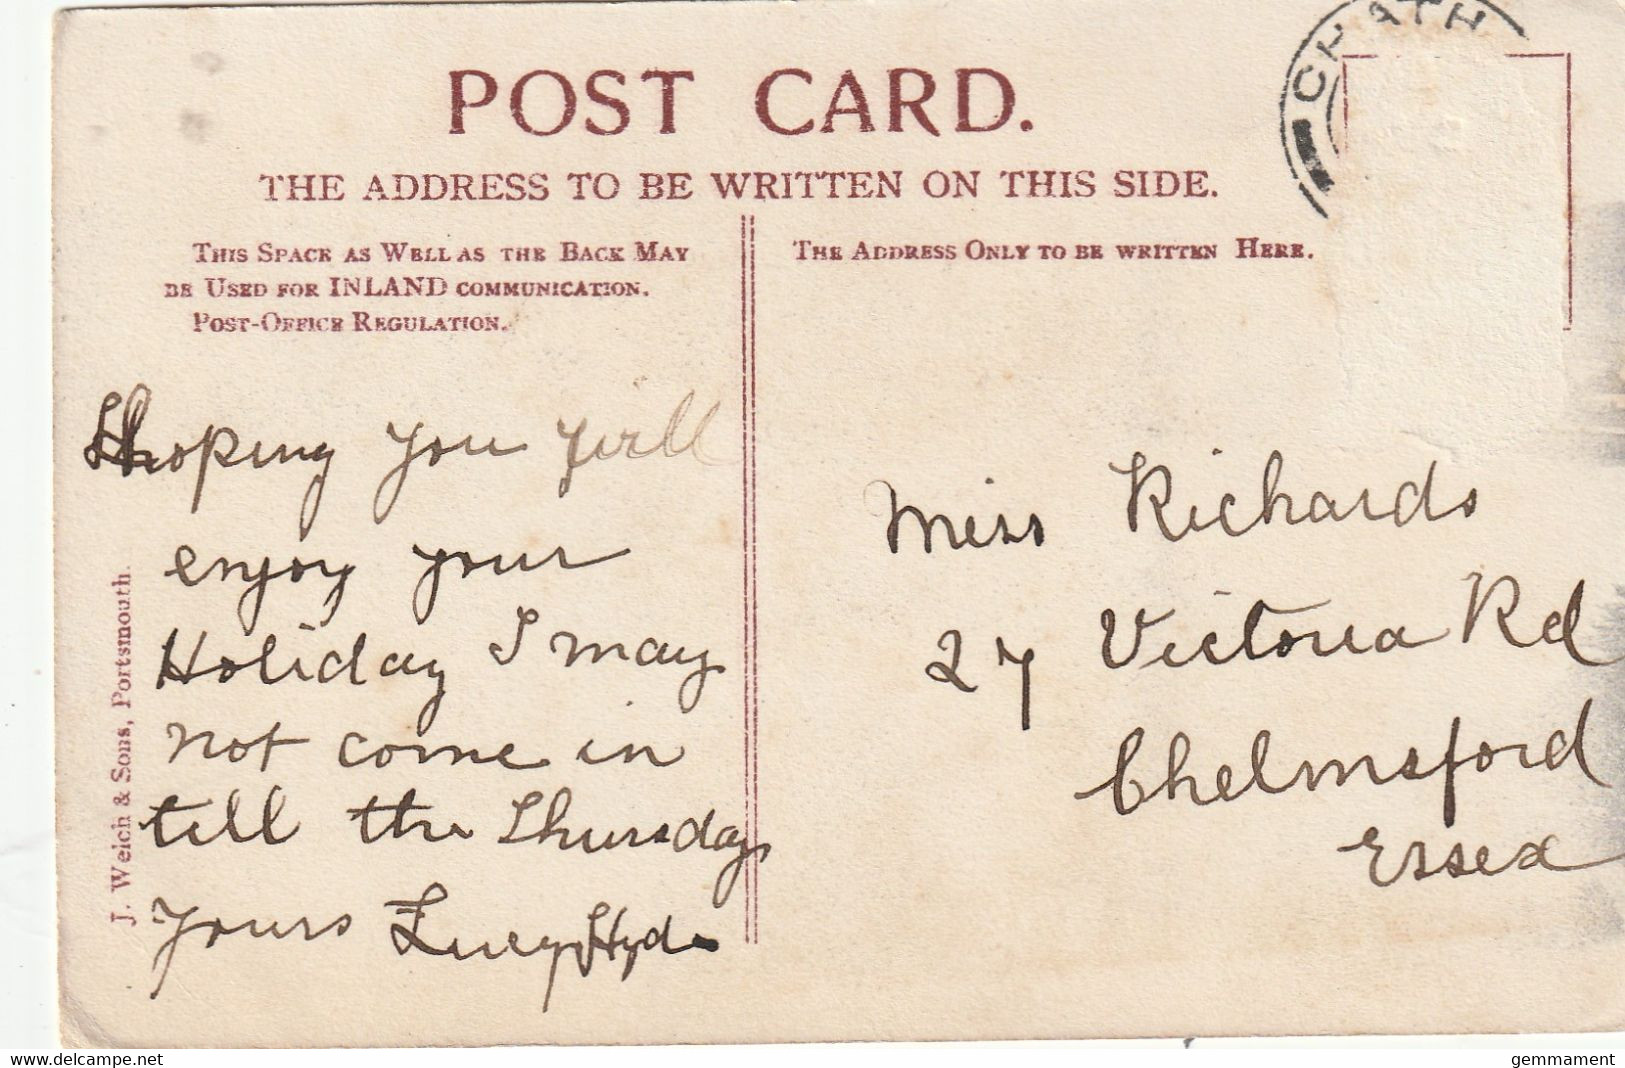 POST CARD.
THE ADDRESS TO BE WRITTEN ON THIS SIDE.
THIS SPACE AS WELL AS THE BACK MAY
BE USED FOR INLAND COMMUNICATION.
POST-OFFICE REGULATION.
THE ADDRESS ONLY TO BE WRITTEN HERE.
CHATH
Hoping you will
enjoy your
Holiday I may
not come in
till the Thursday
Yours Lucy Hyde
Miss Richards
27 Victoria Rd
Chelmsford
Essex
J. Welch & Sons, Portsmouth.
https://www.delcampe.net
gemmament